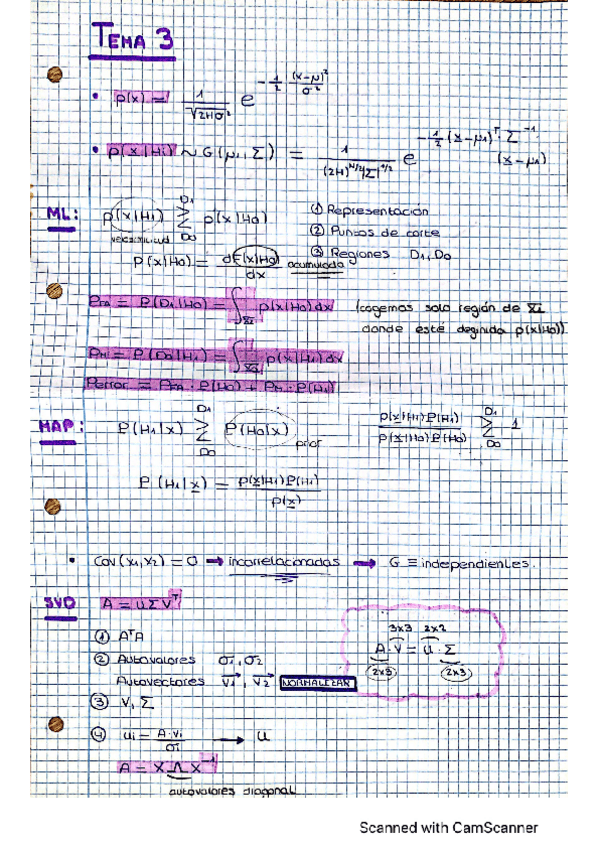 TEMA 3
• p(x) ~ 1/√2πσ² e^(-1/2 (x-μ)²/σ²)
• p(x|Hi) ~ G(μ1, Σ) = 1/((2π)^(N/2)|Σ|^(1/2)) e^(-1/2 (x-μ1)^T · Σ^-1 (x-μ1))
ML: p(x|H1) ≷ D1 D0 p(x|H0)
verosimilitud
① Representación
② Puntos de corte
③ Regiones D1, D0
p(x|H0) = dF(x|H0)/dx acumulada
PFA = P(D1|H0) = ∫X1 p(x|H0) dx (cogemos solo región de X1
donde esté definida p(x|H0))
PM = P(D0|H1) = ∫X0 p(x|H1) dx
Perror = PFA · P(H0) + PM · P(H1)
MAP: P(H1|x) ≷ D1 D0 P(H0|x) prior p(x|H1)P(H1)/p(x|H0)P(H0) ≷ D1 D0 1
P(H1|x) = p(x|H1)P(H1)/p(x)
• Cov(x1,x2) = 0 → incorrelacionadas → G ≡ independientes.
SVD A = UΣV^T
① A^TA
② Autovalores σ1, σ2
Autovectores v1, v2 NORMALIZAR
③ V, Σ
④ ui = A·vi/σi → U
A = X Λ X^-1
autovalores diagonal
3x3 2x2
A·V = U·Σ
2x3 2x3
Scanned with CamScanner